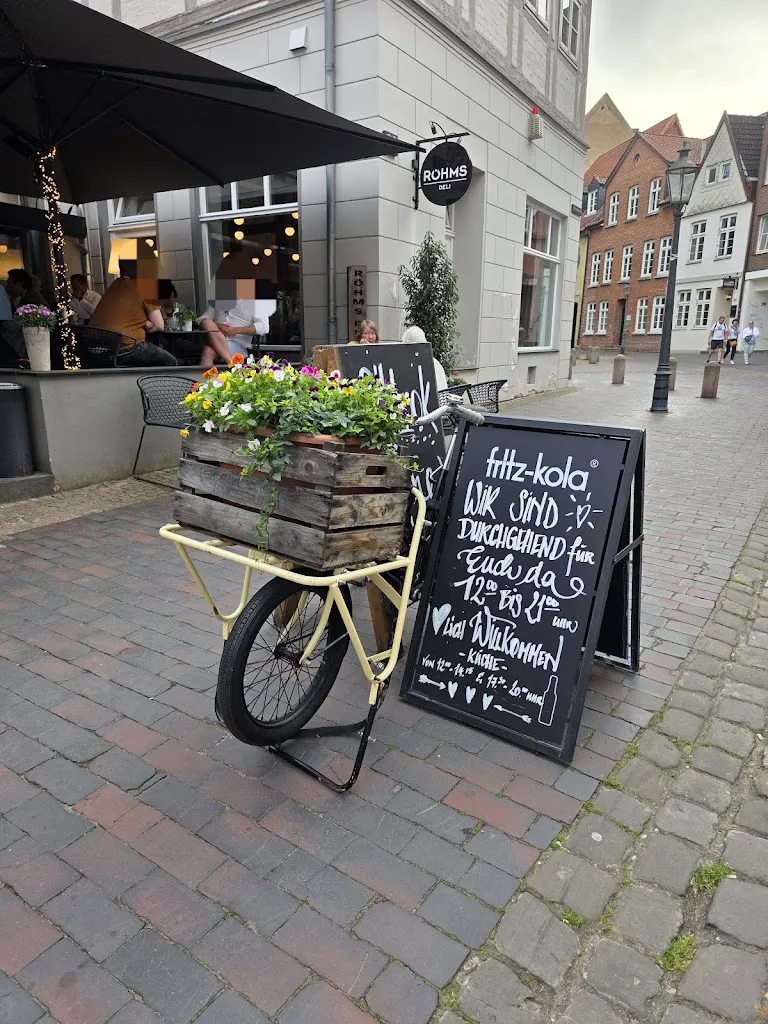 RÖHMS
DELI
RÖHMS
fritz-kola®
WIR SIND
DURCHGEHEND für
Euch da
12⁰⁰ BIS 21⁰⁰ UHR
♥lich Willkommen
- KÜCHE -
VON 12⁰⁰-14³⁰ & 17³⁰-20⁰⁰ UHR